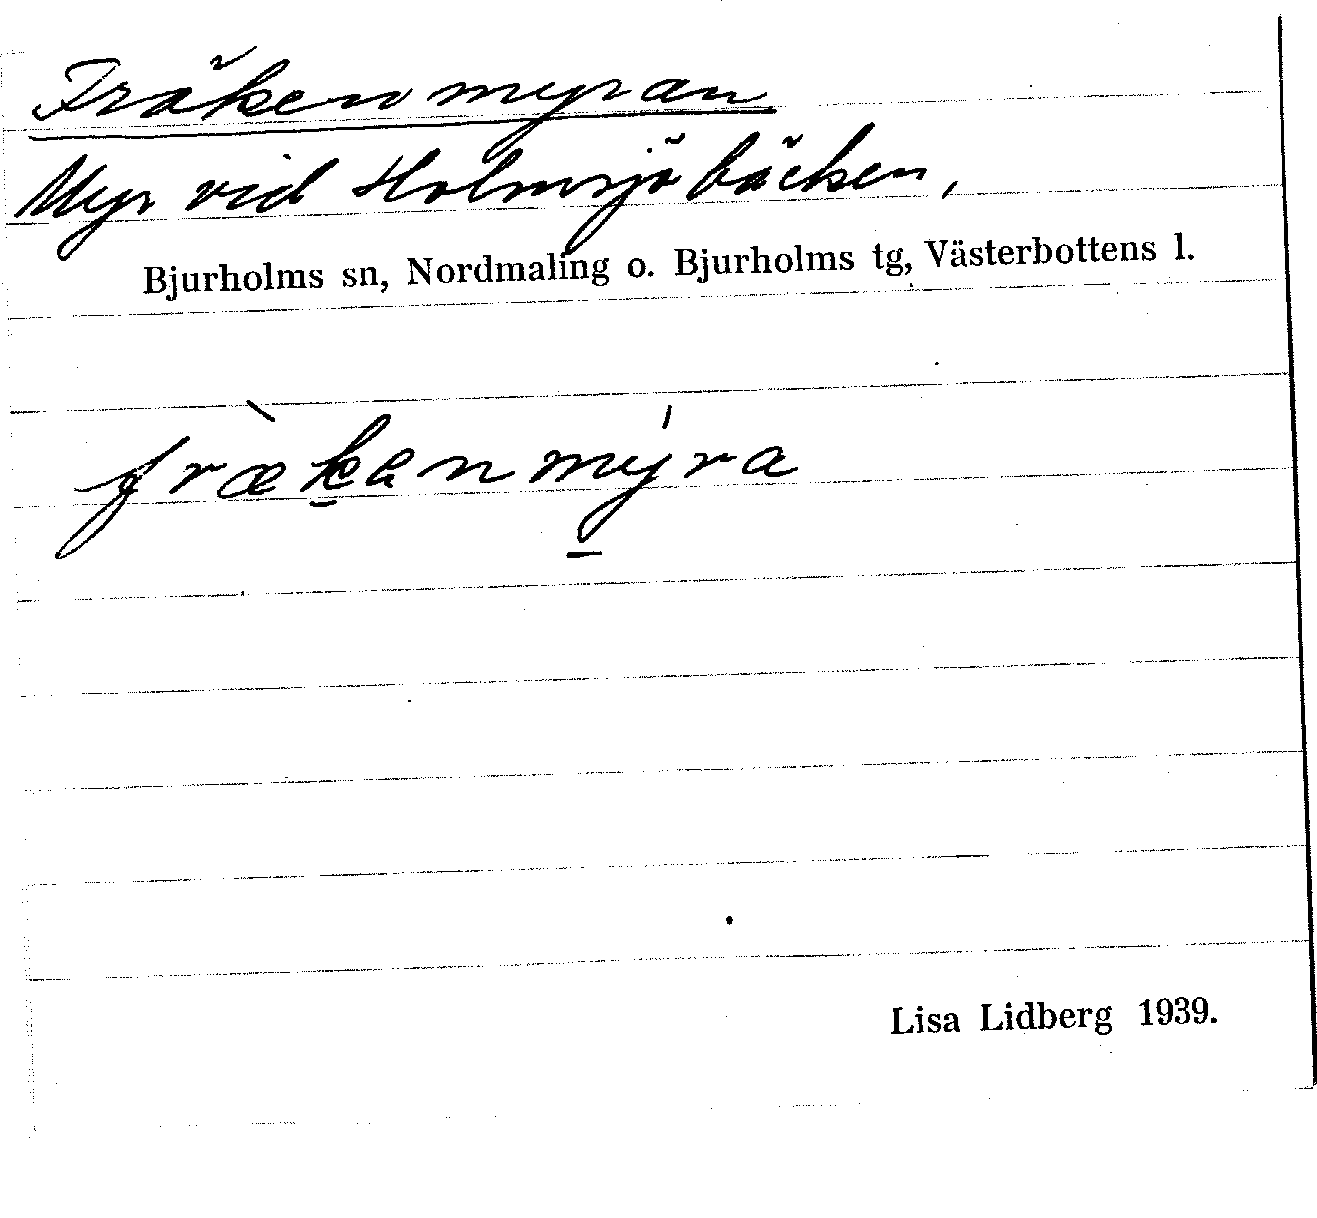 Fräkenmyran
Myr vid Holmsjöbäcken,
Bjurholms sn, Nordmaling o. Bjurholms tg, Västerbottens l.
fræ̀kanmýra
Lisa Lidberg 1939.